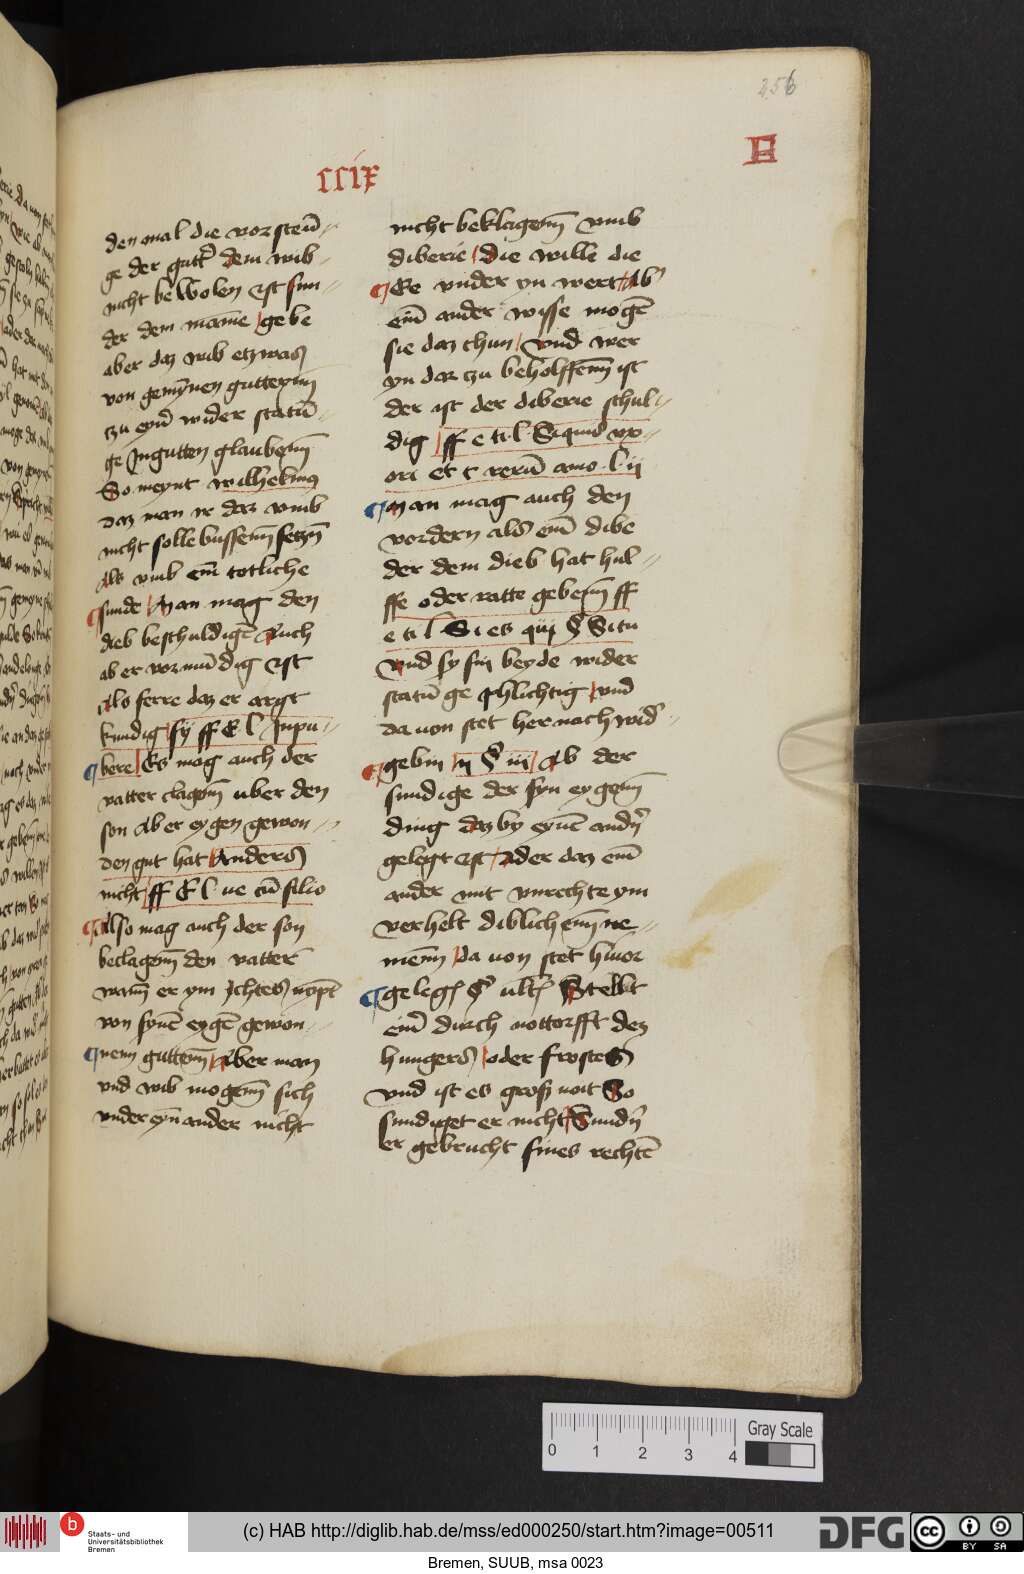 256
H
CCIX
den mal die vorsteū
ge der gutt dem wib
nicht bewolen ist sun
der dem manne gebe
aber daz wib etzwas
von gemeynen guttern
zu eym wider statū
ge In gutten glaubenn
So meynt wilhelmus
daz man ir daz vmb
nicht solle bussenn setzn̄
Als vmb ein totliche
sunde Man mag den
dieb beschuldigē Auch
ab er vormūdig ist
Als ferre daz er argt
kundig sy ff E l Inpu
bere Es mag auch der
vatter clagenn uber den
son Ab er eygen gewon
den gut hat Anders
nicht ff E l ue cū filio
Also mag auch der son
beclagenn den vatter
wann er ym Ichtes nympt
von synē eygē gewon
nenn guttenn Aber man
vnd wib mogenn sich
vnder eynander nicht
nicht beklagenn vmb
diberie die wille die
Ee vnder yn wert Ab
ein ander wisse mogē
sie daz thun Vnd wer
yn dar zu beholffenn ist
der ist der diberie schul
dig ff e ti l Siquis vx
ori et c rerū amo l ij
Man mag auch den
vordern als ein dibe
der dem dieb hat hul
ffe oder ratte gebenn ff
e ti l Si es qui § Si tu
Vnd sy sin beyde wider
statū ge phlichtig vnd
da von stet her nach wid
gebin ij § iii Ab der
sundige der syn eygenn
ding daz by eynē andn̄
gelegt ist Ader daz ein
ander mit vnrechte ym
verhelt diblichenn ne
menn da von stet hivor
geleg § ult Stelet
ein durch nottorfft dez
hungers oder frostes
vnd ist es groß noit So
sundiget er nicht Sundn̄
er gebrucht sines rechtē
0 1 2 3 4
Gray Scale
b
Staats- und
Universitätsbibliothek
Bremen
(c) HAB http://diglib.hab.de/mss/ed000250/start.htm?image=00511
DFG
cc
BY SA
Bremen, SUUB, msa 0023